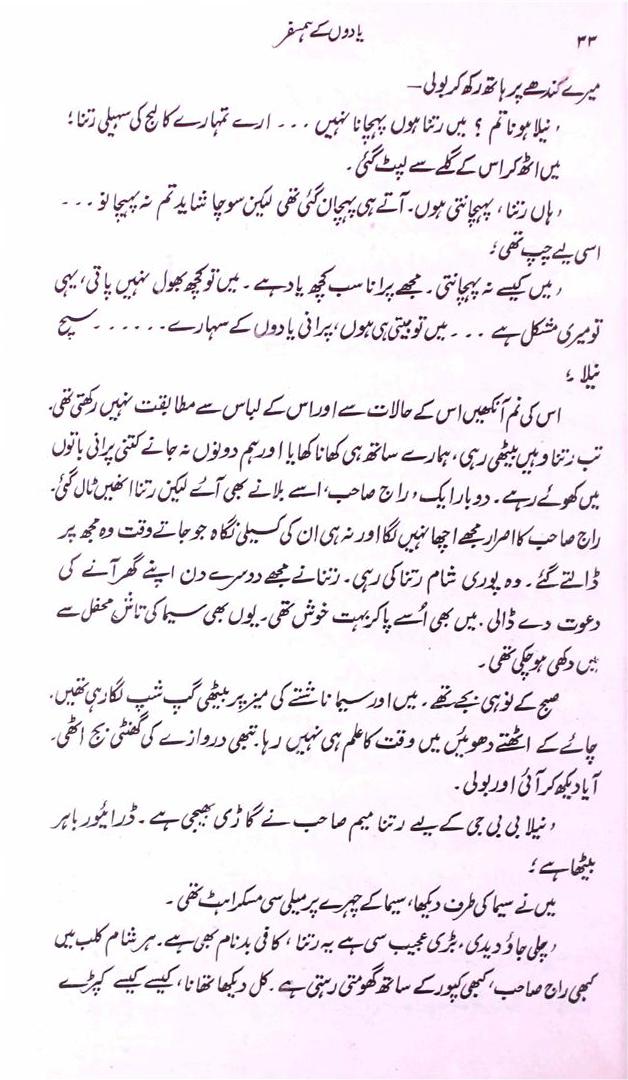 ۳۳
یادوں کے ہمسفر
میرے کندھے پر ہاتھ رکھ کر بولی —
’نیلا ہو نا تم ؟ میں رتنا ہوں پہچانا نہیں ... ارے تمہارے کالج کی سہیلی رتنا‘
میں اٹھ کر اس کے گلے سے لپٹ گئی۔
’ہاں رتنا، پہچانتی ہوں۔ آتے ہی پہچان گئی تھی لیکن سوچا شاید تم نہ پہچانو ...
اسی لیے چپ تھی‘
’میں کیسے نہ پہچانتی۔ مجھے پرانا سب کچھ یاد ہے۔ میں تو کچھ بھول نہیں پاتی، یہی
تو میری مشکل ہے ... میں تو جیتی ہی ہوں، پرانی یادوں کے سہارے...... سچ
نیلا‘
اس کی نم آنکھیں اس کے حالات سے اور اس کے لباس سے مطابقت نہیں رکھتی تھی۔
تب رتنا وہیں بیٹھی رہی، ہمارے ساتھ ہی کھانا کھایا اور ہم دونوں نہ جانے کتنی پرانی باتوں
میں کھوئے رہے۔ دو بار ایک ’راج صاحب‘ اسے بلانے بھی آئے لیکن رتنا انھیں ٹال گئی۔
راج صاحب کا اصرار مجھے اچھا نہیں لگا اور نہ ہی ان کی کسیلی نگاہ جو جاتے وقت وہ مجھ پر
ڈالتے گئے۔ وہ پوری شام رتنا کی رہی۔ رتنا نے مجھے دوسرے دن اپنے گھر آنے کی
دعوت دے ڈالی۔ میں بھی اُسے پا کر بہت خوش تھی۔ یوں بھی سیما کی تاش محفل سے
میں دکھی ہو چکی تھی۔
صبح کے نو ہی بجے تھے۔ میں اور سیما ناشتے کی میز پر بیٹھی گپ شپ لگا رہی تھیں۔
چائے کے اٹھتے دھوئیں میں وقت کا علم ہی نہیں رہا۔ تبھی دروازے کی گھنٹی بج اٹھی۔
آیا دیکھ کر آئی اور بولی۔
’نیلا بی بی جی کے لیے رتنا میم صاحب نے گاڑی بھیجی ہے۔ ڈرائیور باہر
بیٹھا ہے‘
میں نے سیما کی طرف دیکھا، سیما کے چہرے پر میلی سی مسکراہٹ تھی۔
’چلی جاؤ دیدی، بڑی عجیب سی ہے یہ رتنا، کافی بدنام بھی ہے۔ ہر شام کلب میں
کبھی راج صاحب، کبھی کپور کے ساتھ گھومتی رہتی ہے۔ کل دیکھا تھا نا، کیسے کیسے کپڑے